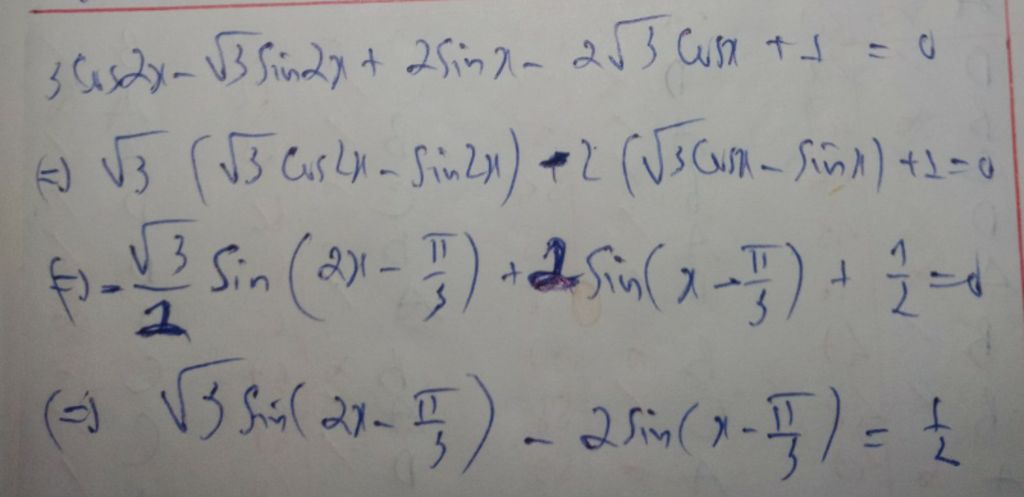 3 Cos2x - √3 Sin2x + 2Sinx - 2√3 Cosx + 1 = 0
(=) √3 (√3 Cos2x - Sin2x) - 2 (√3Cosx - Sinx) + 1 = 0
(=) - √3/2 Sin (2x - π/3) + 2 Sin(x - π/3) + 1/2 = 0
(=) √3 Sin(2x - π/3) - 2Sin(x - π/3) = 1/2